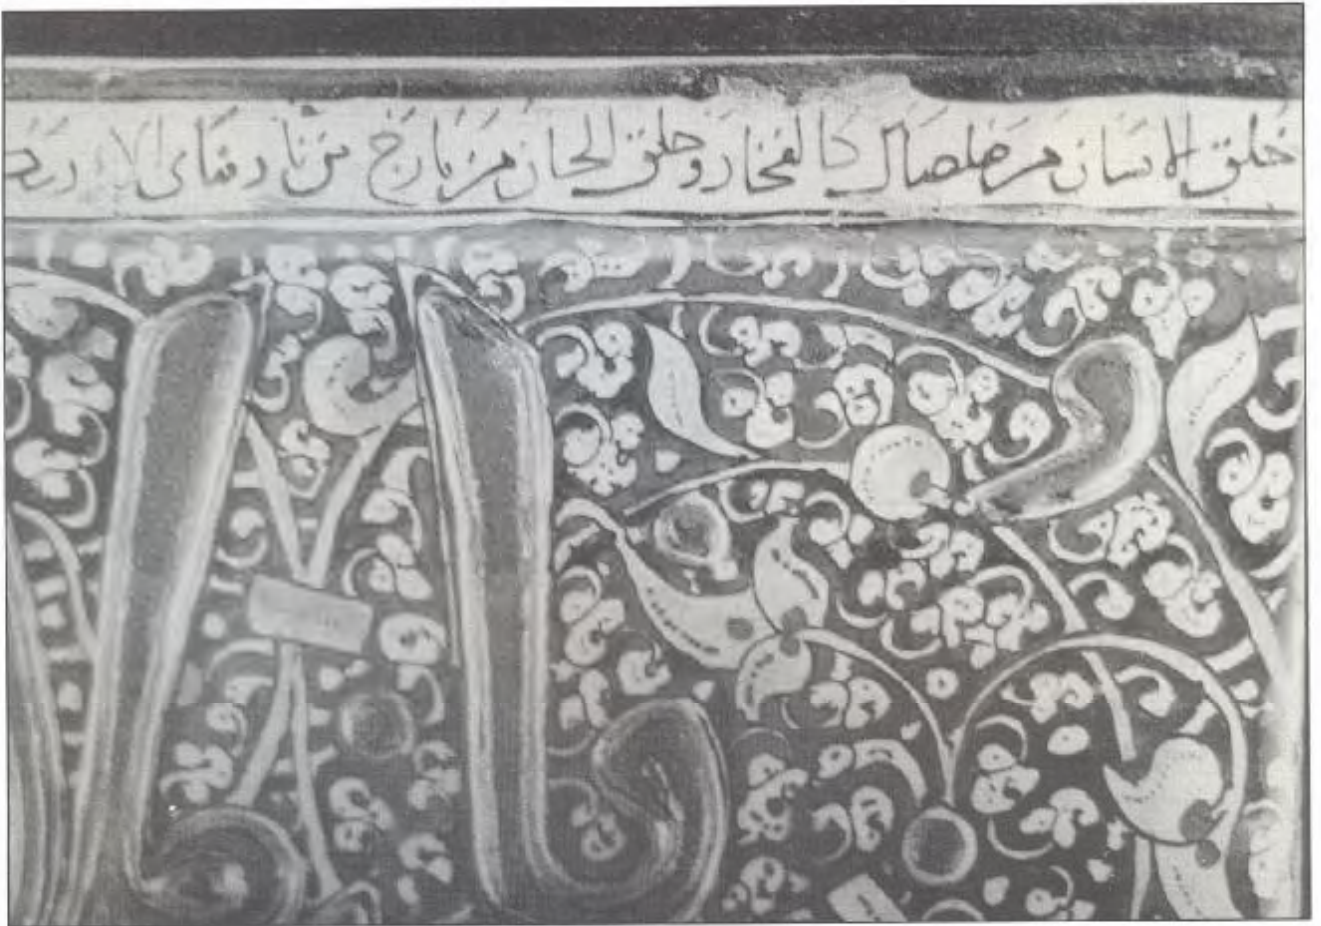 خلق الانسان من صلصال كالفخار وخلق الجان من مارج من نار فبأى الاء ربكـ